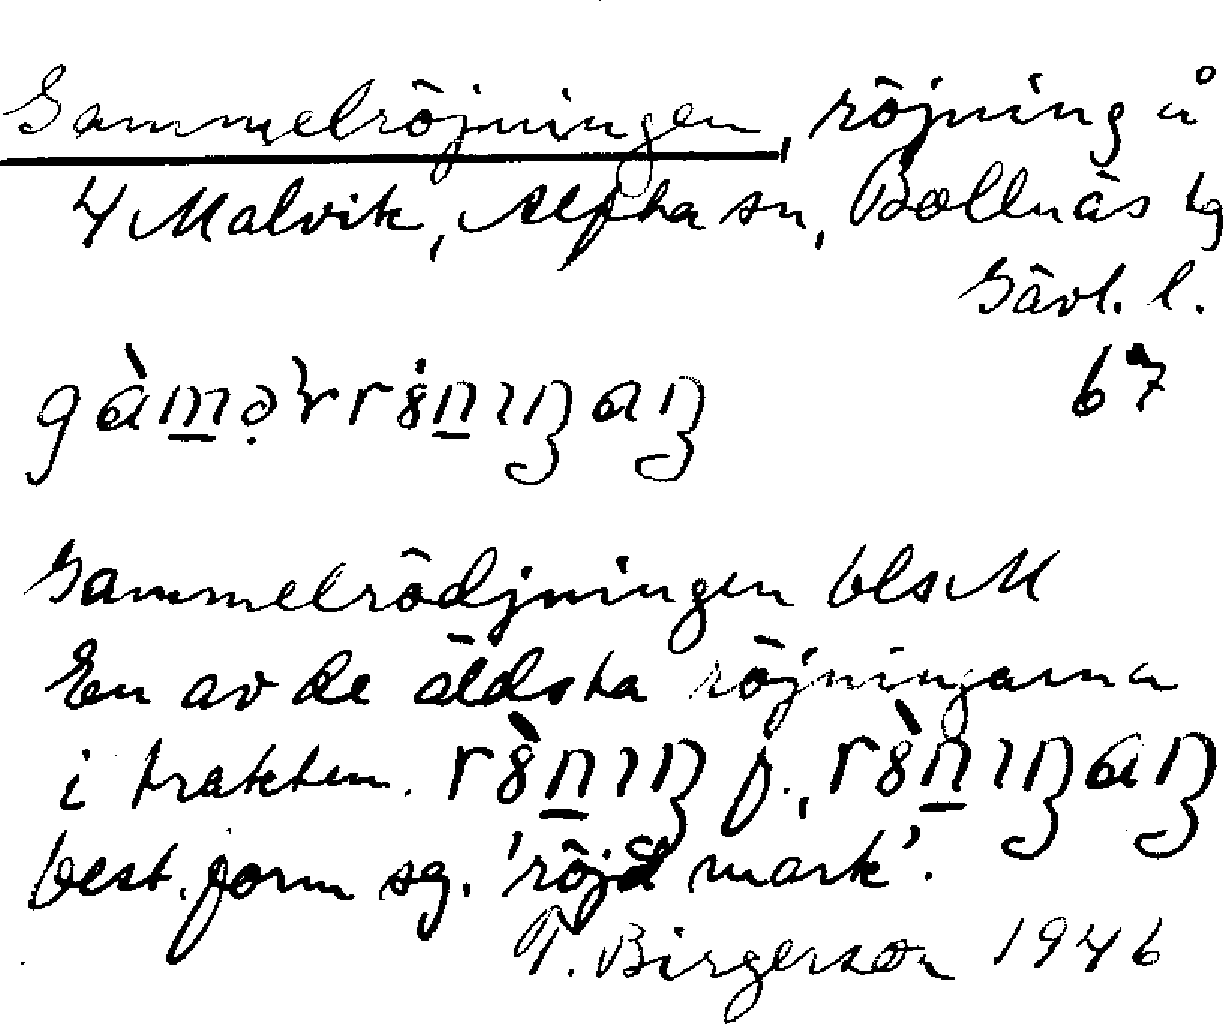 Gammelröjningen, röjning å
4 Malvik, Alfta sn, Bollnäs tg
Gävl. l.
67
Gammelrödjningen blsM
En av de äldsta röjningarna
i trakten. f.,
best. form sg. 'röjd mark'.
T. Birgerson 1946